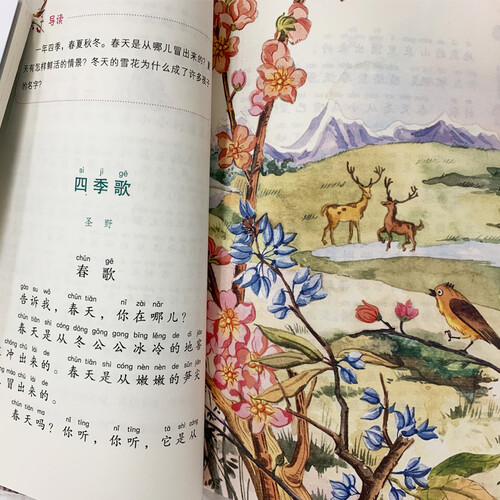 导读
一年四季，春夏秋冬。春天是从哪儿冒出来的？
天有怎样鲜活的情景？冬天的雪花为什么成了许多孩子
的名字？
sì jì gē
四季歌
圣野
chūn gē
春歌
gào su wǒ chūn tiān nǐ zài nǎr
告诉我，春天，你在哪儿？
chūn tiān shì cóng dōng gōng gong bīng lěng de dì jiào
春天是从冬公公冰冷的地窖
chōng chū lái de chūn tiān shì cóng nèn nèn de sǔn jiān
冲出来的。春天是从嫩嫩的笋尖
mào chū lái de
冒出来的。
chūn tiān ma nǐ tīng nǐ tīng tā shì cóng
春天吗？你听，你听，它是从